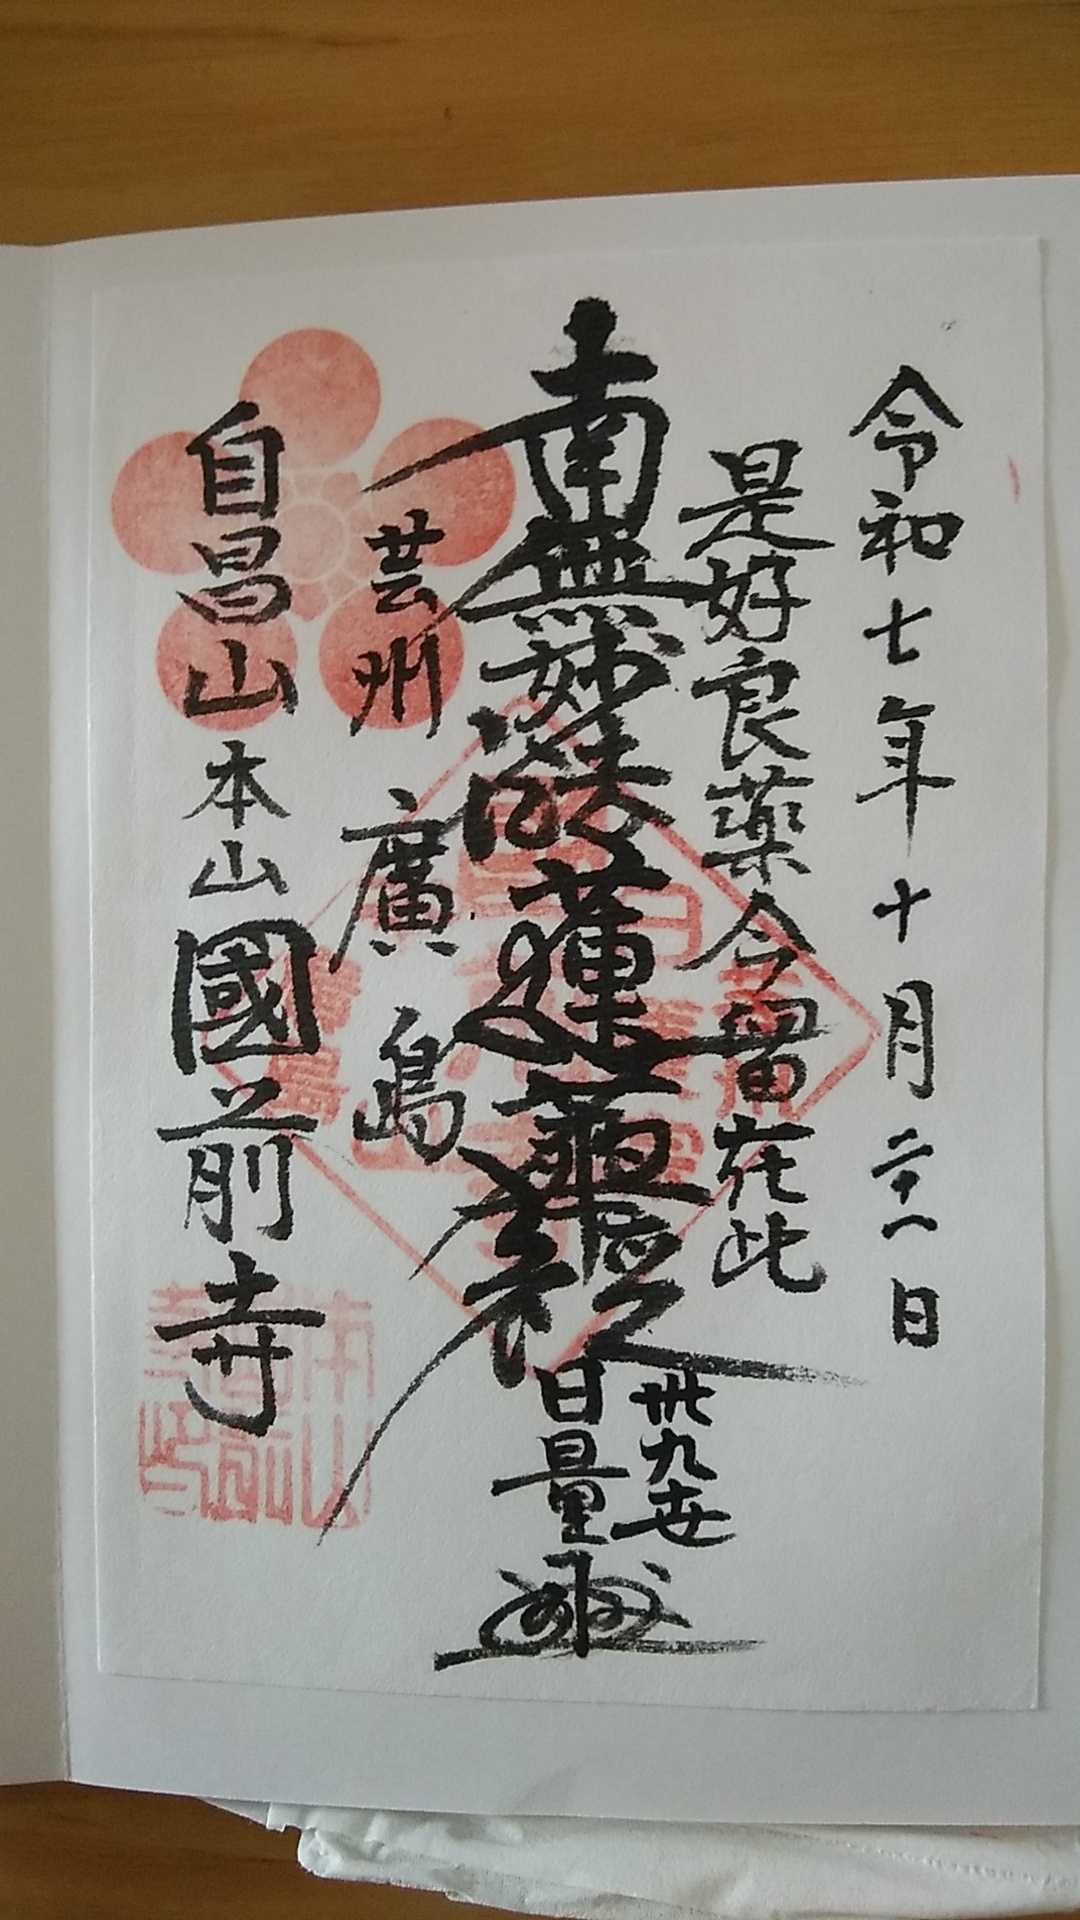 令和七年十月二十八日
是好良薬今留在此
南無妙法蓮華経
卅九世
日量
芸州廣島
自昌山本山國前寺